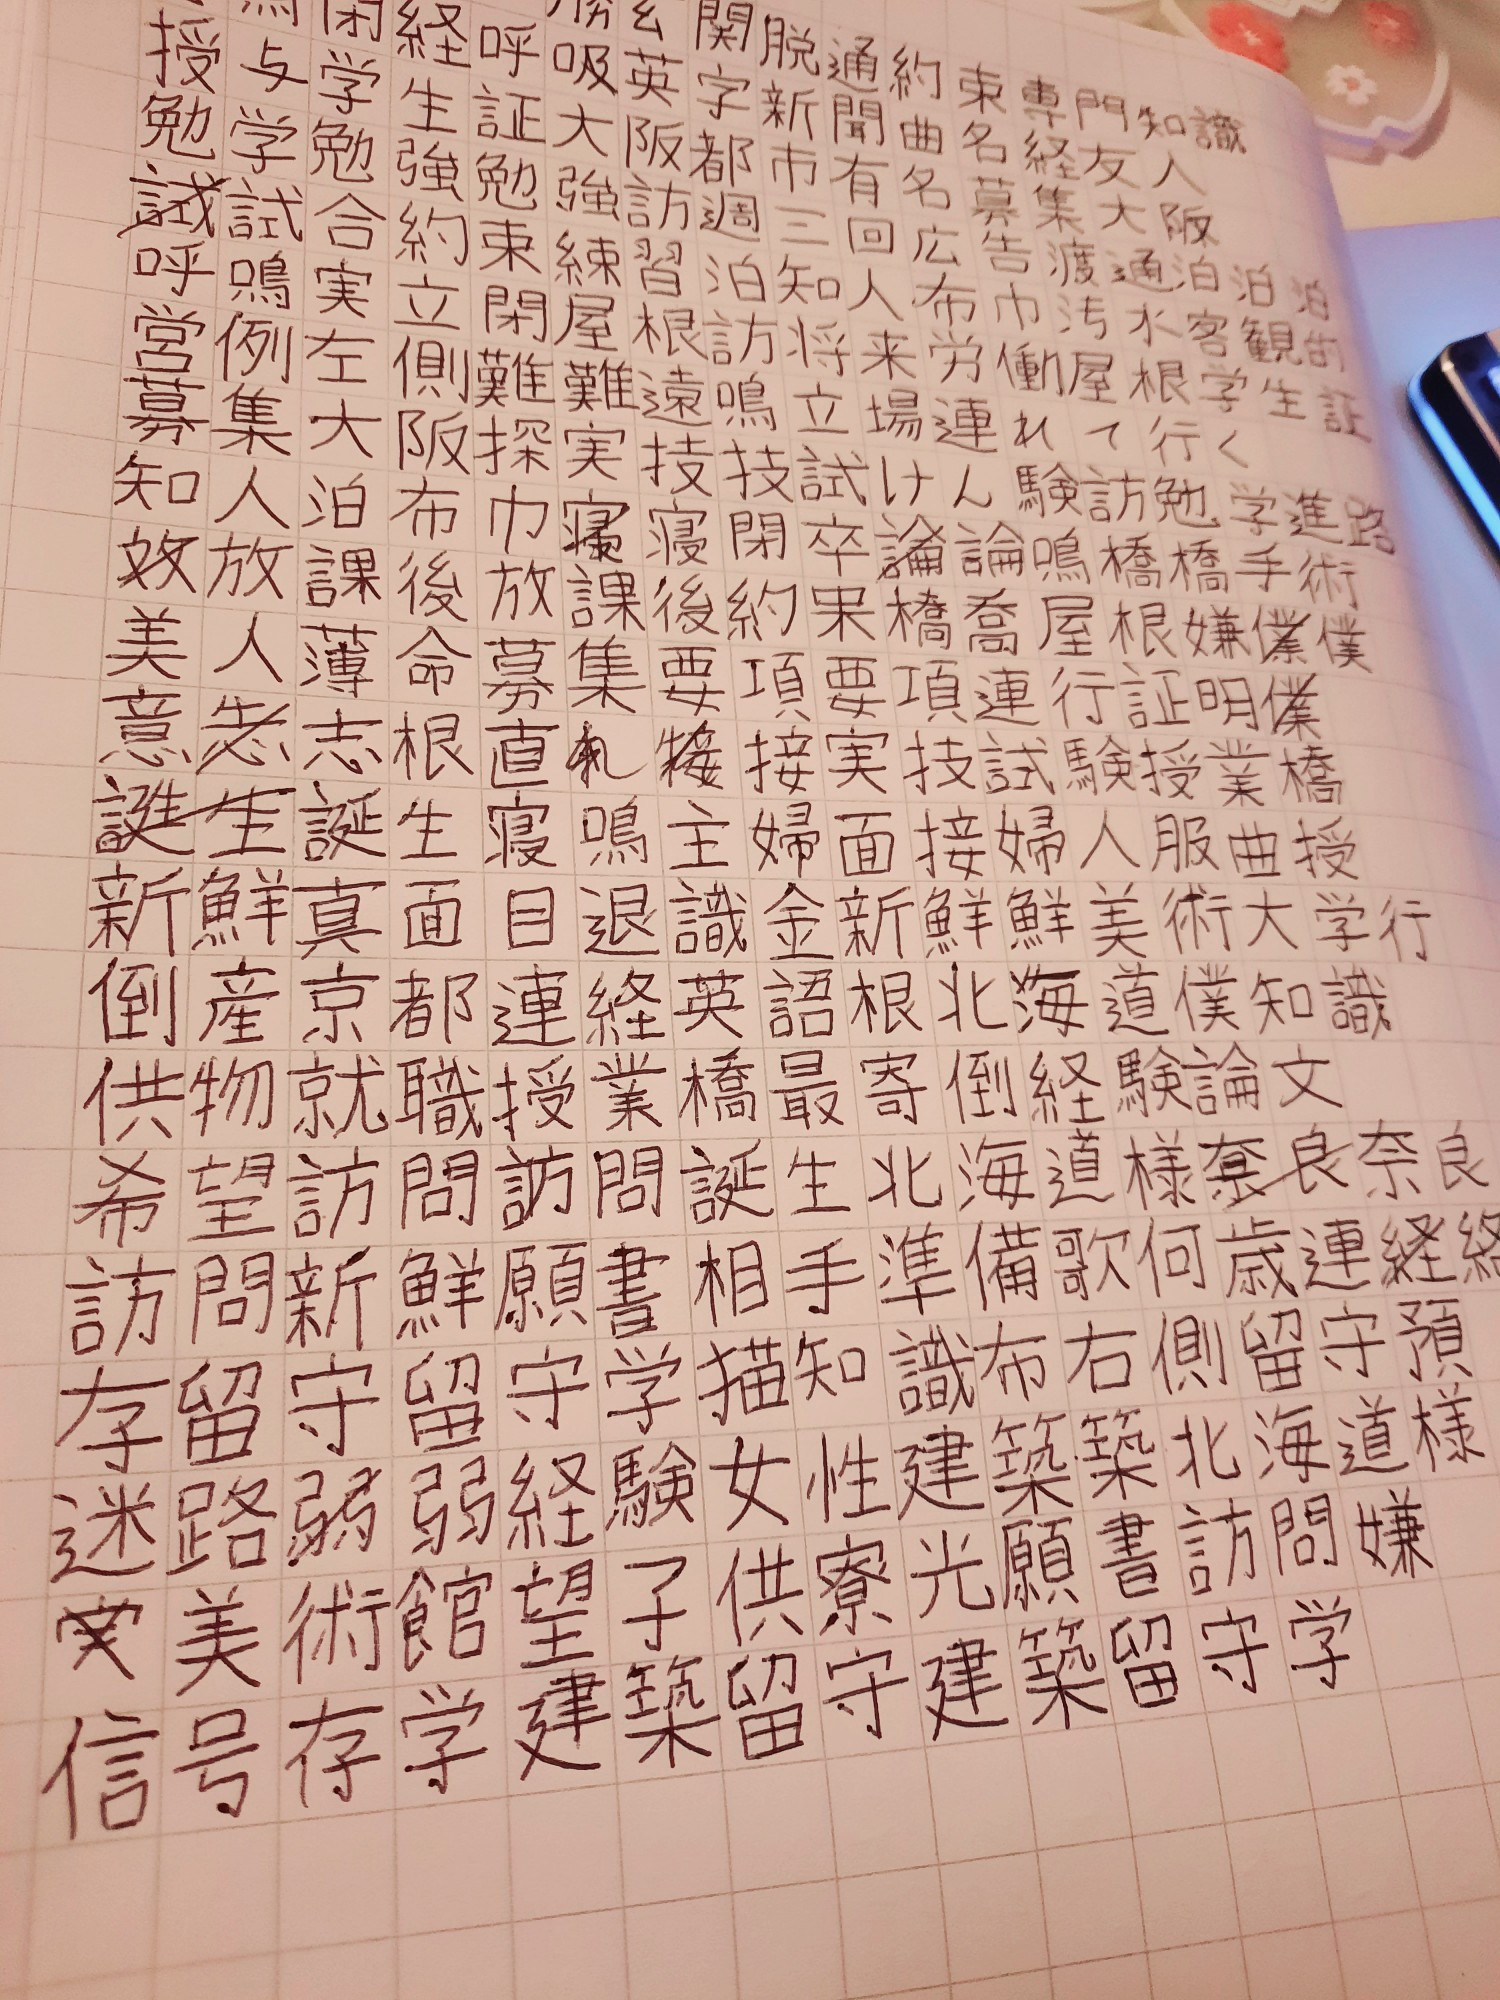 経呼 関脱通約束専門知識
授与学生証大阪都市有名募集大阪
勉学勉強勉強訪週三回広告渡通泊泊泊
試試合約束練習泊知人布巾汚水客観的
呼鳴実立閉屋根訪将来労働屋根学生証
営例左側難難遠鳴立場連れて行く
募集大阪探実技技試けん験訪勉学進路
知人泊布巾寝寝閉卒論論鳴橋橋手術
効放課後放課後約束橋喬屋根嫌僕僕
美人薄命募集要項要項連行証明僕
意志志根直れ接接実技試験授業橋
誕生誕生寝鳴主婦面接婦人服曲授
新鮮真面目退識金新鮮鮮美術大学行
倒産京都連経英語根北海道僕知識
供物就職授業橋最寄倒経験論文
希望訪問訪問誕生北海道様奈良奈良
訪問新鮮願書相手準備歌何歳連経経
存留守留守学猫知識布右側留守預
迷路弱弱経験女性建築築北海道様
美術館望子供寮光願書訪問嫌
信号存学建築留守建築留守学